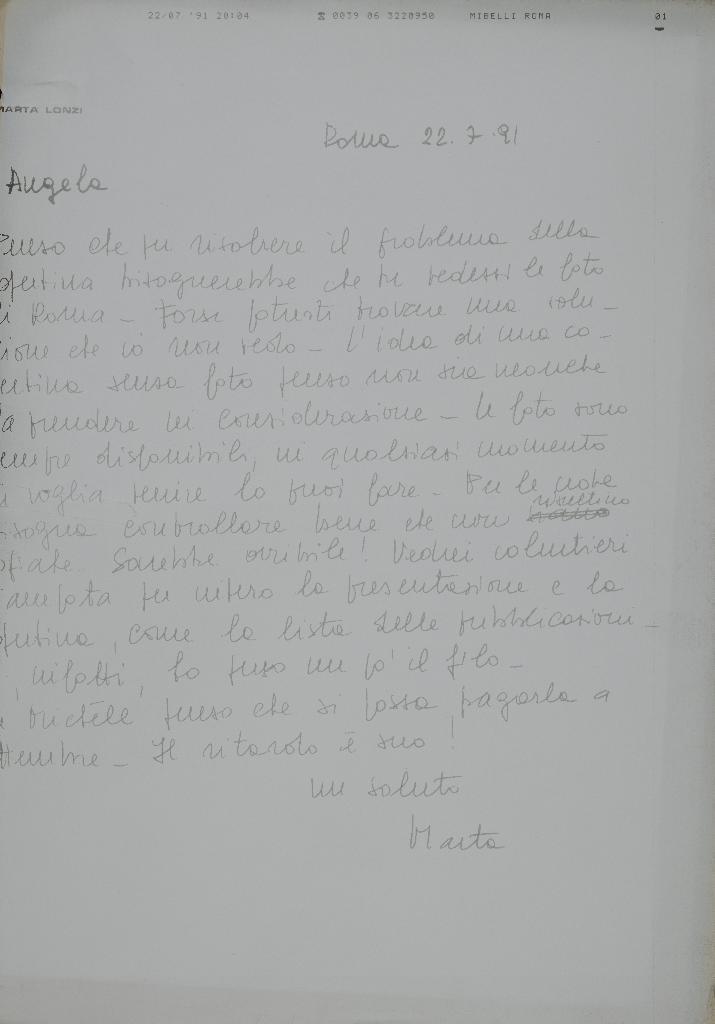 22/07 '91 20:04 ☎ 0039 06 3220950 MIBELLI ROMA 01
MARTA LONZI
Roma 22.7.91
Angela
Penso che per risolvere il problema della
opertina bisognerebbe che tu vedessi le foto
di Roma – Forse potresti trovare una solu-
zione che io non vedo – l'idea di una co-
pertina senza foto penso non sia neanche
da prendere in considerazione – le foto sono
sempre disponibili, in qualsiasi momento
si voglia venire lo puoi fare – Per le note
isogna controllare bene che non risultino
ofiate. Sarebbe orribile! Vedrei volentieri
ampata per intero la presentazione e la
opertina, come la lista delle pubblicazioni –
, infatti, ho perso un po' il filo –
Michèle penso che si possa pagarla a
ettembre – Il ritardo è suo!
un saluto
Marta